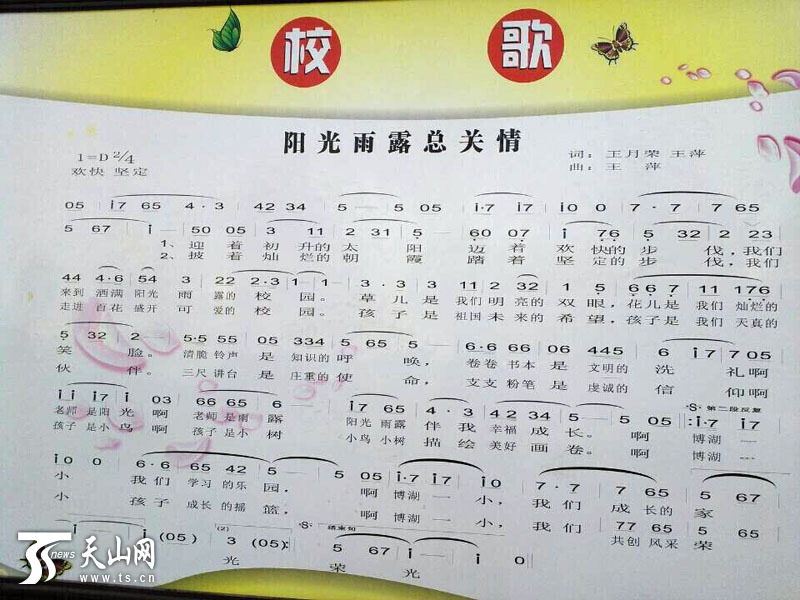 校 歌
阳光雨露总关情
1=D 2/4
欢快 坚定
词：王月荣 王萍
曲：王 萍
05 i7 65 4·3 42 34 5— 5 05 i·7 i7 i0 0 7·7 7 65
5 67 i— 50 05 3 11 2 31 5 60 07 i 76 5 32 2 23
1、迎着初升的太阳 迈着欢快的步伐，我们
2、披着灿烂的朝霞 踏着坚定的步伐，我们
44 4·6 54 3 22 2·3 1—1 3·3 3 11 2 32 i 66 7 11 176
来到洒满阳光雨露的校园。草儿是我们明亮的双眼，花儿是我们灿烂的
走进百花盛开可爱的校园。孩子是祖国未来的希望，孩子是我们天真的
5 32 2— 5·5 55 05 334 5 5 6·6 66 06 445 6 i7 7 05
笑脸。清脆铃声是知识的呼唤，卷卷书本是文明的洗礼啊
伙伴。三尺讲台是庄重的使命，支支粉笔是虔诚的信仰啊
ii i7 i 03 66 65 6 i7 65 4·3 42 34 5— 5 05 :i·7 i7
第二段反复
老师是阳光啊 老师是雨露 阳光雨露伴我幸福成长。啊 博湖一
孩子是小鸟啊 孩子是小树 小鸟小树描绘美好画卷。啊 博湖一
i0 0 6·6 65 42 5— 5 05 i·7 i7 i0 7·7 7 65 5 67
小 我们学习的乐园，啊 博湖一小，我们成长的家
小 孩子成长的摇篮，啊 博湖一小，我们
77 65 5 65
共创风采荣
i— i (05) (2) 3 (05): 结束句 5 67 i— i 0
光 荣光
news 天山网
www.ts.cn